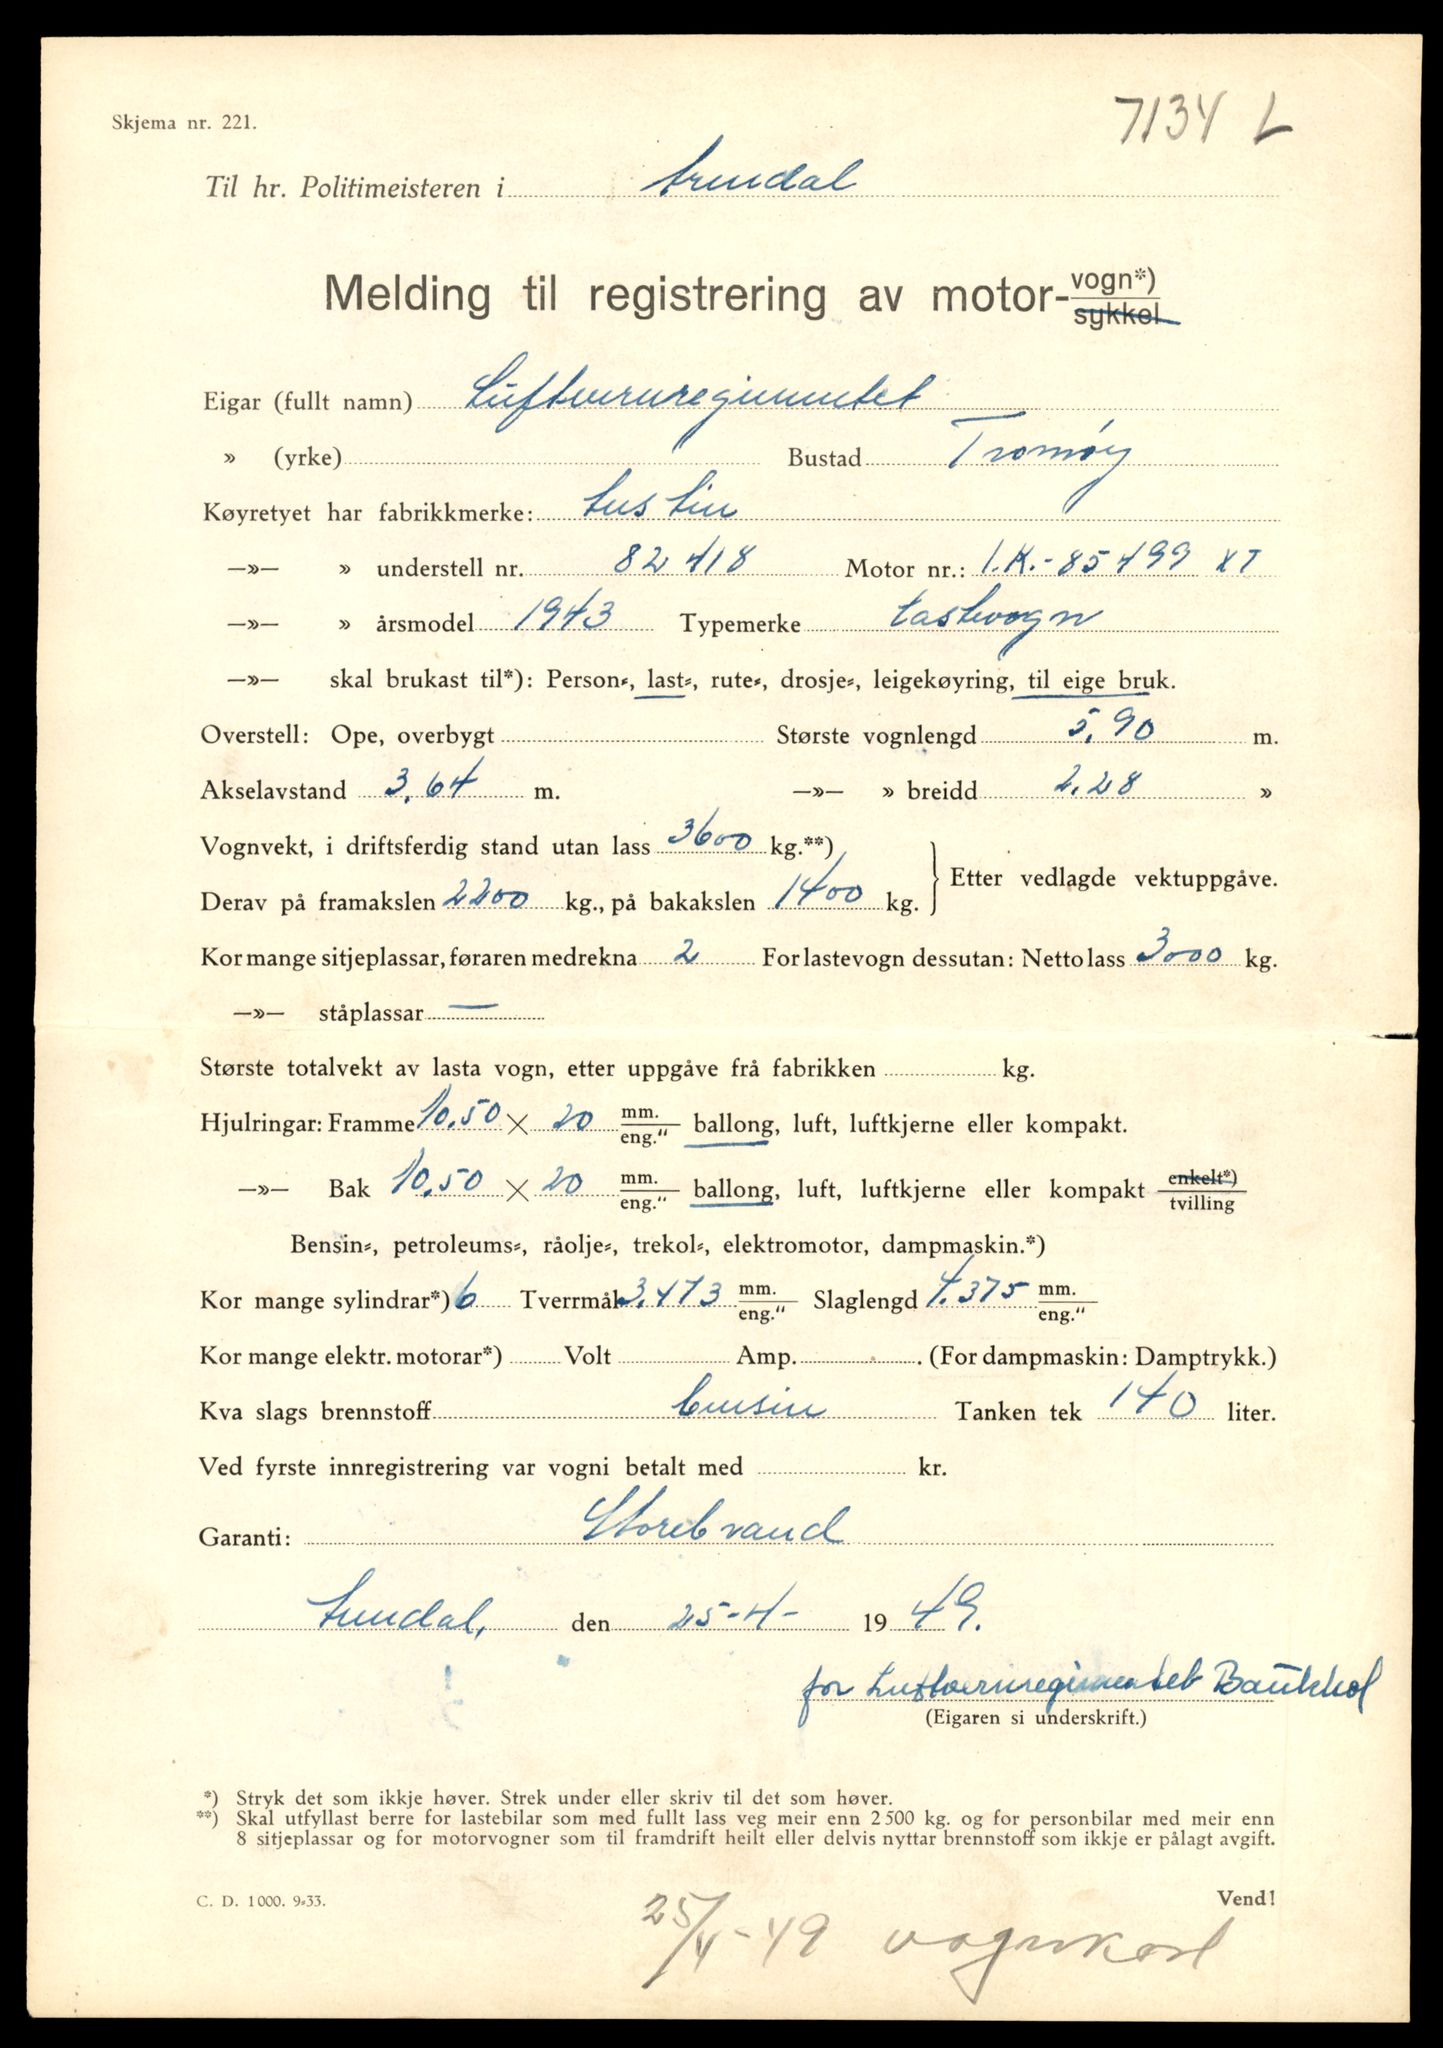 Skjema nr. 221.
7134 L
Til hr. Politimeisteren i Arendal
Melding til registrering av motor-vogn*)
sykkel
Eigar (fullt namn) Luftvernregimentet
» (yrke) Bustad Tromøy
Køyretyet har fabrikkmerke: Austin
—»— » understell nr. 82418 Motor nr.: 1.K.-85499 XT
—»— » årsmodel 1943 Typemerke Lastevogn
—»— skal brukast til*): Person-, last-, rute-, drosje-, leigekøyring, til eige bruk.
Overstell: Ope, overbygt Største vognlengd 5,90 m.
Akselavstand 3,64 m. —»— » breidd 2,28 »
Vognvekt, i driftsferdig stand utan lass 3600 kg.**)
Etter vedlagde vektuppgåve.
Derav på framakslen 2200 kg., på bakakslen 1400 kg.
Kor mange sitjeplassar, føraren medrekna 2 For lastevogn dessutan: Netto lass 3000 kg.
—»— ståplassar —
Største totalvekt av lasta vogn, etter uppgåve frå fabrikken kg.
Hjulringar: Framme 10.50 × 20 mm. eng." ballong, luft, luftkjerne eller kompakt.
—»— Bak 10.50 × 20 mm. eng." ballong, luft, luftkjerne eller kompakt enkelt*) tvilling
Bensin-, petroleums-, råolje-, trekol-, elektromotor, dampmaskin.*)
Kor mange sylindrar*) 6 Tverrmål 3.473 mm. eng." Slaglengd 4.375 mm. eng."
Kor mange elektr. motorar*) Volt Amp. . (For dampmaskin: Damptrykk.)
Kva slags brennstoff bensin Tanken tek 140 liter.
Ved fyrste innregistrering var vogni betalt med kr.
Garanti: Storebrand
Arendal, den 25-4- 1949.
for Luftvernregimentet
(Eigaren si underskrift.)
*) Stryk det som ikkje høver. Strek under eller skriv til det som høver.
**) Skal utfyllast berre for lastebilar som med fullt lass veg meir enn 2500 kg. og for personbilar med meir enn
8 sitjeplassar og for motorvogner som til framdrift heilt eller delvis nyttar brennstoff som ikkje er pålagt avgift.
C. D. 1000. 9-33. Vend!
25/4-49 vognkort